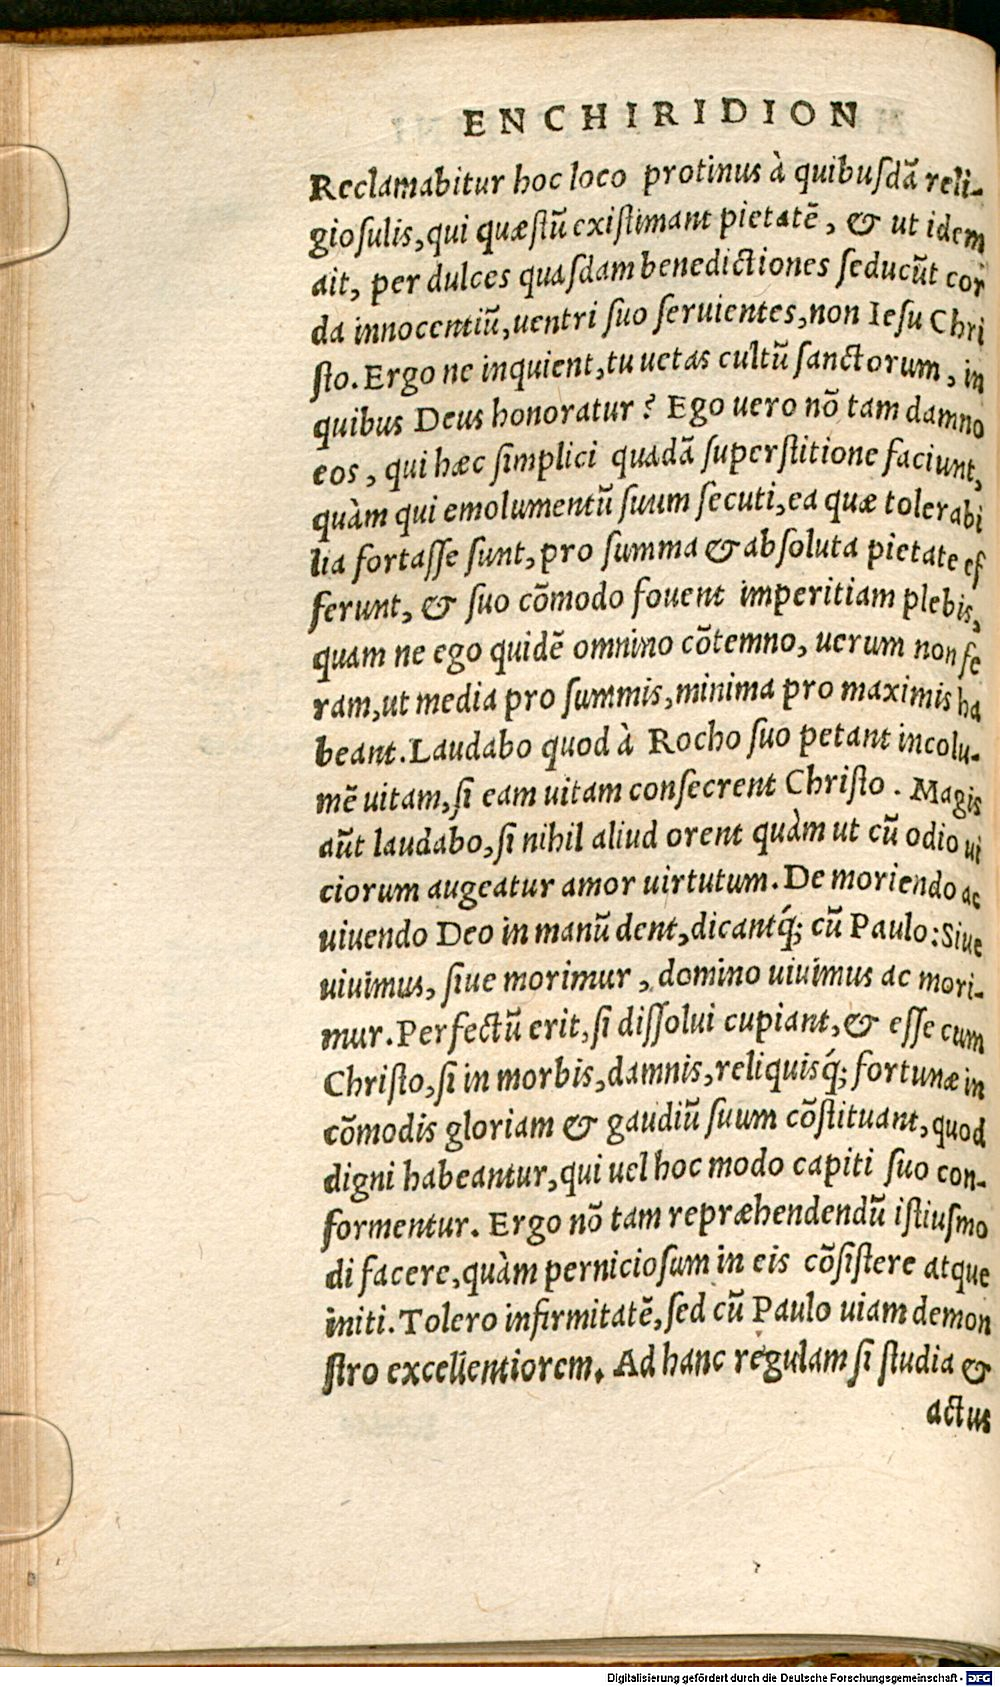 ENCHIRIDION
Reclamabitur hoc loco protinus à quibusdã reli-
giosulis, qui quæstũ existimant pietatẽ, & ut idem
ait, per dulces quasdam benedictiones seducũt cor
da innocentiũ, uentri suo seruientes, non Iesu Chri
sto. Ergo ne inquient, tu uetas cultũ sanctorum, in
quibus Deus honoratur? Ego uero nõ tam damno
eos, qui hæc simplici quadã superstitione faciunt,
quàm qui emolumentũ suum secuti, ea quæ tolerabi
lia fortasse sunt, pro summa & absoluta pietate ef
ferunt, & suo cõmodo fouent imperitiam plebis,
quam ne ego quidẽ omnino cõtemno, uerum non fe
ram, ut media pro summis, minima pro maximis ha
beant. Laudabo quod à Rocho suo petant incolu-
mẽ uitam, si eam uitam consecrent Christo. Magis
aũt laudabo, si nihil aliud orent quàm ut cũ odio ui
ciorum augeatur amor uirtutum. De moriendo ac
uiuendo Deo in manũ dent, dicantq́; cũ Paulo: Siue
uiuimus, siue morimur, domino uiuimus ac mori-
mur. Perfectũ erit, si dissolui cupiant, & esse cum
Christo, si in morbis, damnis, reliquisq́; fortunæ in
cõmodis gloriam & gaudiũ suum cõstituant, quod
digni habeantur, qui uel hoc modo capiti suo con-
formentur. Ergo nõ tam repræhendendũ istiusmo
di facere, quàm perniciosum in eis cõsistere atque
initi. Tolero infirmitatẽ, sed cũ Paulo uiam demon
stro excellentiorem. Ad hanc regulam si studia &
actus
Digitalisierung gefördert durch die Deutsche Forschungsgemeinschaft - DFG